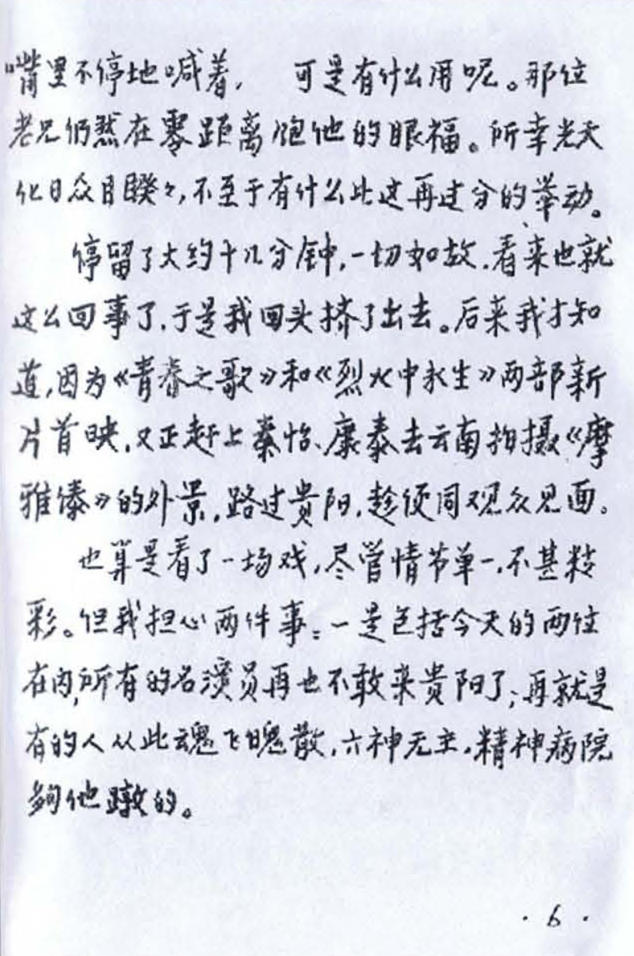 嘴里不停地喊着, 可是有什么用呢。那位
老兄仍然在零距离饱他的眼福。所幸光天
化日众目睽々,不至于有什么比这再过分的举动。
停留了大约十几分钟,一切如故.看来也就
这么回事了,于是我回头挤了出去。后来我才知
道,因为《青春之歌》和《烈火中永生》两部新
片首映,又正赶上秦怡、康泰去云南拍摄《摩
雅傣》的外景,路过贵阳,趁便同观众见面。
也算是看了一场戏,尽管情节单一,不甚精
彩。但我担心两件事:一是包括今天的两位
在内,所有的名演员再也不敢来贵阳了;再就是
有的人从此魂飞魄散,六神无主,精神病院
够他蹾的。
·6·